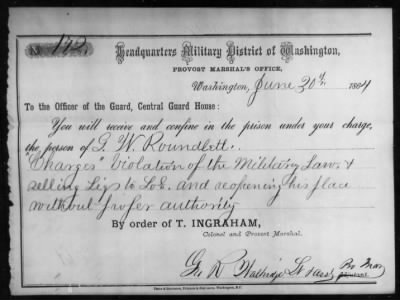 No 142.
Headquarters Military District of Washington,
PROVOST MARSHAL'S OFFICE,
Washington, June 20th, 1864
To the Officer of the Guard, Central Guard House:
You will receive and confine in the prison under your charge,
the person of G. W. Roundlett.
"Charges" Violation of the Military Laws &
selling Liqs to Sol. and reopening his place
without proper authority
By order of T. INGRAHAM,
Colonel and Provost Marshal.
Geo R. Lt Pro Mar
Adjutant.